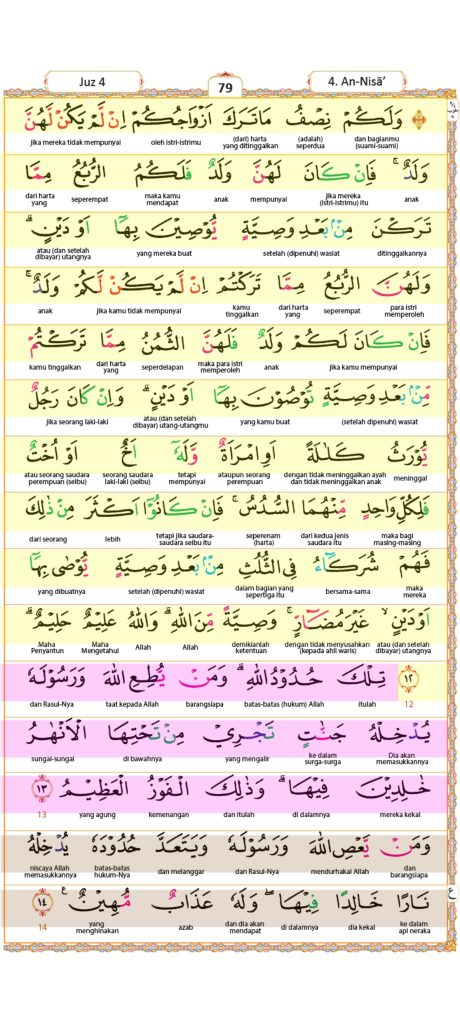 Juz 4
79
4. An-Nisā’
وَلَكُمْ نِصْفُ مَا تَرَكَ اَزْوَاجُكُمْ اِنْ لَّمْ يَكُنْ لَّهُنَّ
dan bagianmu (suami-suami) (adalah) seperdua (dari) harta yang ditinggalkan oleh istri-istrimu jika mereka tidak mempunyai
وَلَدٌ ۚ فَاِنْ كَانَ لَهُنَّ وَلَدٌ فَلَكُمُ الرُّبُعُ مِمَّا
anak jika mereka (istri-istrimu) itu mempunyai anak maka kamu mendapat seperempat dari harta yang
تَرَكْنَ مِنْۢ بَعْدِ وَصِيَّةٍ يُّوْصِيْنَ بِهَآ اَوْ دَيْنٍ ۗ
ditinggalkannya setelah (dipenuhi) wasiat yang mereka buat atau (dan setelah dibayar) utangnya
وَلَهُنَّ الرُّبُعُ مِمَّا تَرَكْتُمْ اِنْ لَّمْ يَكُنْ لَّكُمْ وَلَدٌ ۚ
para istri memperoleh seperempat dari harta yang kamu tinggalkan jika kamu tidak mempunyai anak
فَاِنْ كَانَ لَكُمْ وَلَدٌ فَلَهُنَّ الثُّمُنُ مِمَّا تَرَكْتُمْ
jika kamu mempunyai anak maka para istri memperoleh seperdelapan dari harta yang kamu tinggalkan
مِّنْۢ بَعْدِ وَصِيَّةٍ تُوْصُوْنَ بِهَآ اَوْ دَيْنٍ ۗ وَاِنْ كَانَ رَجُلٌ
(setelah dipenuhi) wasiat yang kamu buat atau (dan setelah dibayar) utang-utangmu jika seorang laki-laki
يُّوْرَثُ كَلٰلَةً اَوِ امْرَاَةٌ وَّلَهٗٓ اَخٌ اَوْ اُخْتٌ
meninggal dengan tidak meninggalkan ayah dan tidak meninggalkan anak ataupun seorang perempuan tetapi mempunyai seorang saudara laki-laki (seibu) atau seorang saudara perempuan (seibu)
فَلِكُلِّ وَاحِدٍ مِّنْهُمَا السُّدُسُ ۚ فَاِنْ كَانُوْٓا اَكْثَرَ مِنْ ذٰلِكَ
maka bagi masing-masing dari kedua jenis saudara itu seperenam (harta) tetapi jika saudara-saudara seibu itu lebih dari seorang
فَهُمْ شُرَكَاۤءُ فِى الثُّلُثِ مِنْۢ بَعْدِ وَصِيَّةٍ يُّوْصٰى بِهَآ
maka mereka bersama-sama dalam bagian yang sepertiga itu setelah (dipenuhi) wasiat yang dibuatnya
اَوْ دَيْنٍ ۙ غَيْرَ مُضَاۤرٍّ ۚ وَصِيَّةً مِّنَ اللّٰهِ ۗ وَاللّٰهُ عَلِيْمٌ حَلِيْمٌ ۗ
atau (dan setelah dibayar) utangnya dengan tidak menyusahkan (kepada ahli waris) demikianlah ketentuan Allah Allah Maha Mengetahui Maha Penyantun
١٢ تِلْكَ حُدُوْدُ اللّٰهِ ۗ وَمَنْ يُّطِعِ اللّٰهَ وَرَسُوْلَهٗ
12 itulah batas-batas (hukum) Allah barangsiapa taat kepada Allah dan Rasul-Nya
يُدْخِلْهُ جَنّٰتٍ تَجْرِيْ مِنْ تَحْتِهَا الْاَنْهٰرُ
Dia akan memasukkannya ke dalam surga-surga yang mengalir di bawahnya sungai-sungai
خٰلِدِيْنَ فِيْهَا ۗ وَذٰلِكَ الْفَوْزُ الْعَظِيْمُ ١٣
mereka kekal di dalamnya dan itulah kemenangan yang agung 13
وَمَنْ يَّعْصِ اللّٰهَ وَرَسُوْلَهٗ وَيَتَعَدَّ حُدُوْدَهٗ يُدْخِلْهُ
dan barangsiapa mendurhakai Allah dan Rasul-Nya dan melanggar batas-batas hukum-Nya niscaya Allah memasukkannya
نَارًا خَالِدًا فِيْهَا ۖ وَلَهٗ عَذَابٌ مُّهِيْنٌ ࣖ ١٤
ke dalam api neraka dia kekal di dalamnya dan dia akan mendapat azab yang menghinakan 14
ع